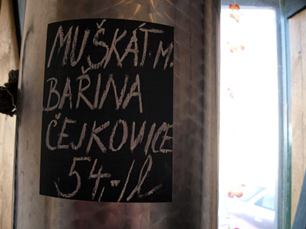 MUŠKÁT M.
BAŘINA
ČEJKOVICE
54,-/l